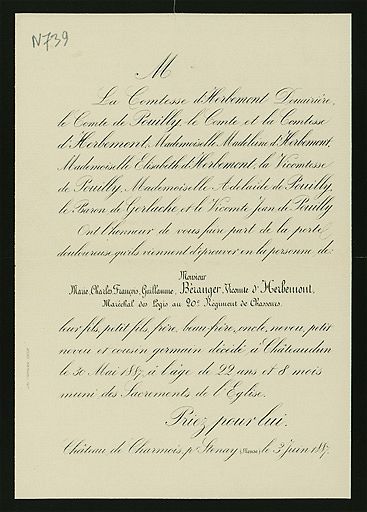 N739
M
La Comtesse d'Herbemont Douairière,
le Comte de Pouilly, le Comte et la Comtesse
d'Herbemont, Mademoiselle Madeleine d'Herbemont,
Mademoiselle Elisabeth d'Herbemont, la Vicomtesse
de Pouilly, Mademoiselle Adelaïde de Pouilly,
le Baron de Gerlache et le Vicomte Jean de Pouilly
Ont l'honneur de vous faire part de la perte
douloureuse qu'ils viennent d'éprouver en la personne de:
Monsieur
Marie, Charles, François, Guillaume, Béranger, Vicomte d'Herbemont,
Maréchal des Logis au 20e Régiment de Chasseurs.
leur fils, petit fils, frère, beau-frère, oncle, neveu, petit
neveu et cousin germain décédé à Châteaudun
le 30 Mai 1887, à l'âge de 22 ans et 8 mois
muni des Sacrements de l'Eglise.
Priez pour lui.
Château de Charmois, pr Stenay (Meuse) le 3 juin 1887.